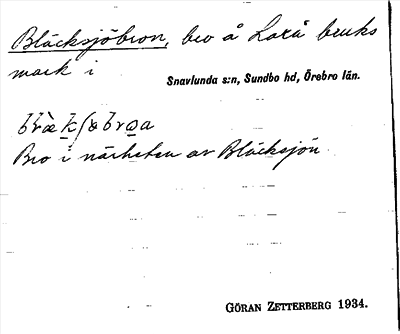 Bläcksjöbron, bro å Laxå bruks
mark i
Snavlunda s:n, Sundbo hd, Örebro län.
Bro i närheten av Bläcksjön
GÖRAN ZETTERBERG 1934.